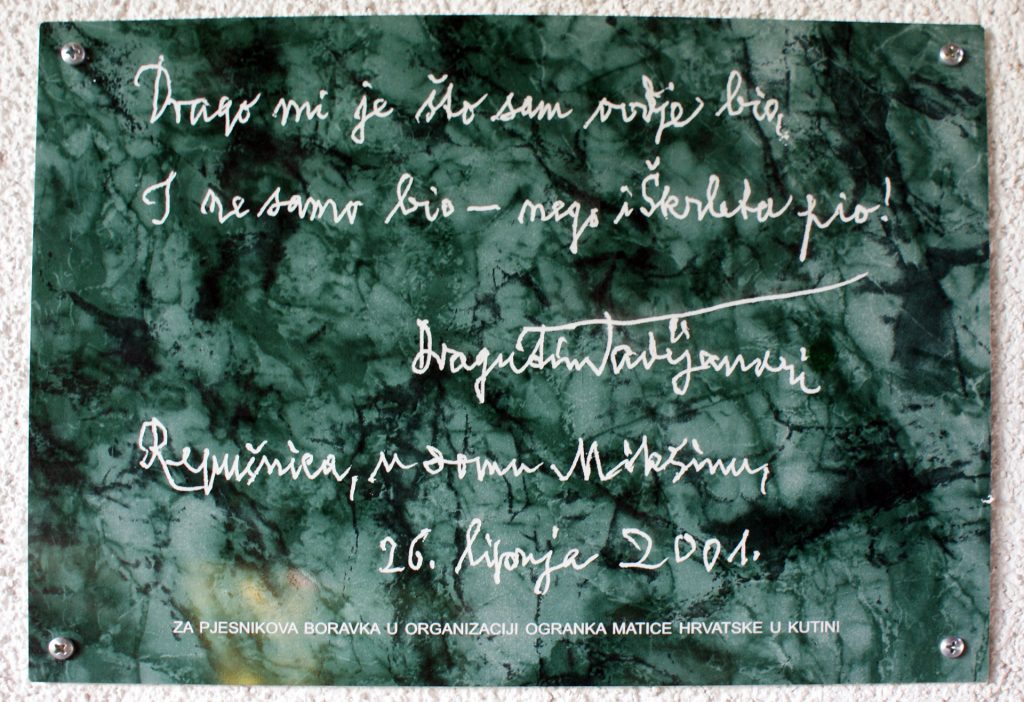 Drago mi je što sam ovdje bio,
I ne samo bio – nego i Škrleta pio!
Dragutin Tadijanović
Repušnica, u domu Mikšinu,
26. lipnja 2001.
ZA PJESNIKOVA BORAVKA U ORGANIZACIJI OGRANKA MATICE HRVATSKE U KUTINI